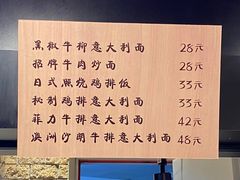 黑椒牛柳意大利面 28元
招牌牛肉炒面 28元
日式照烧鸡排饭 33元
秘制鸡排意大利面 33元
菲力牛排意大利面 42元
澳洲沙朗牛排意大利面 48元